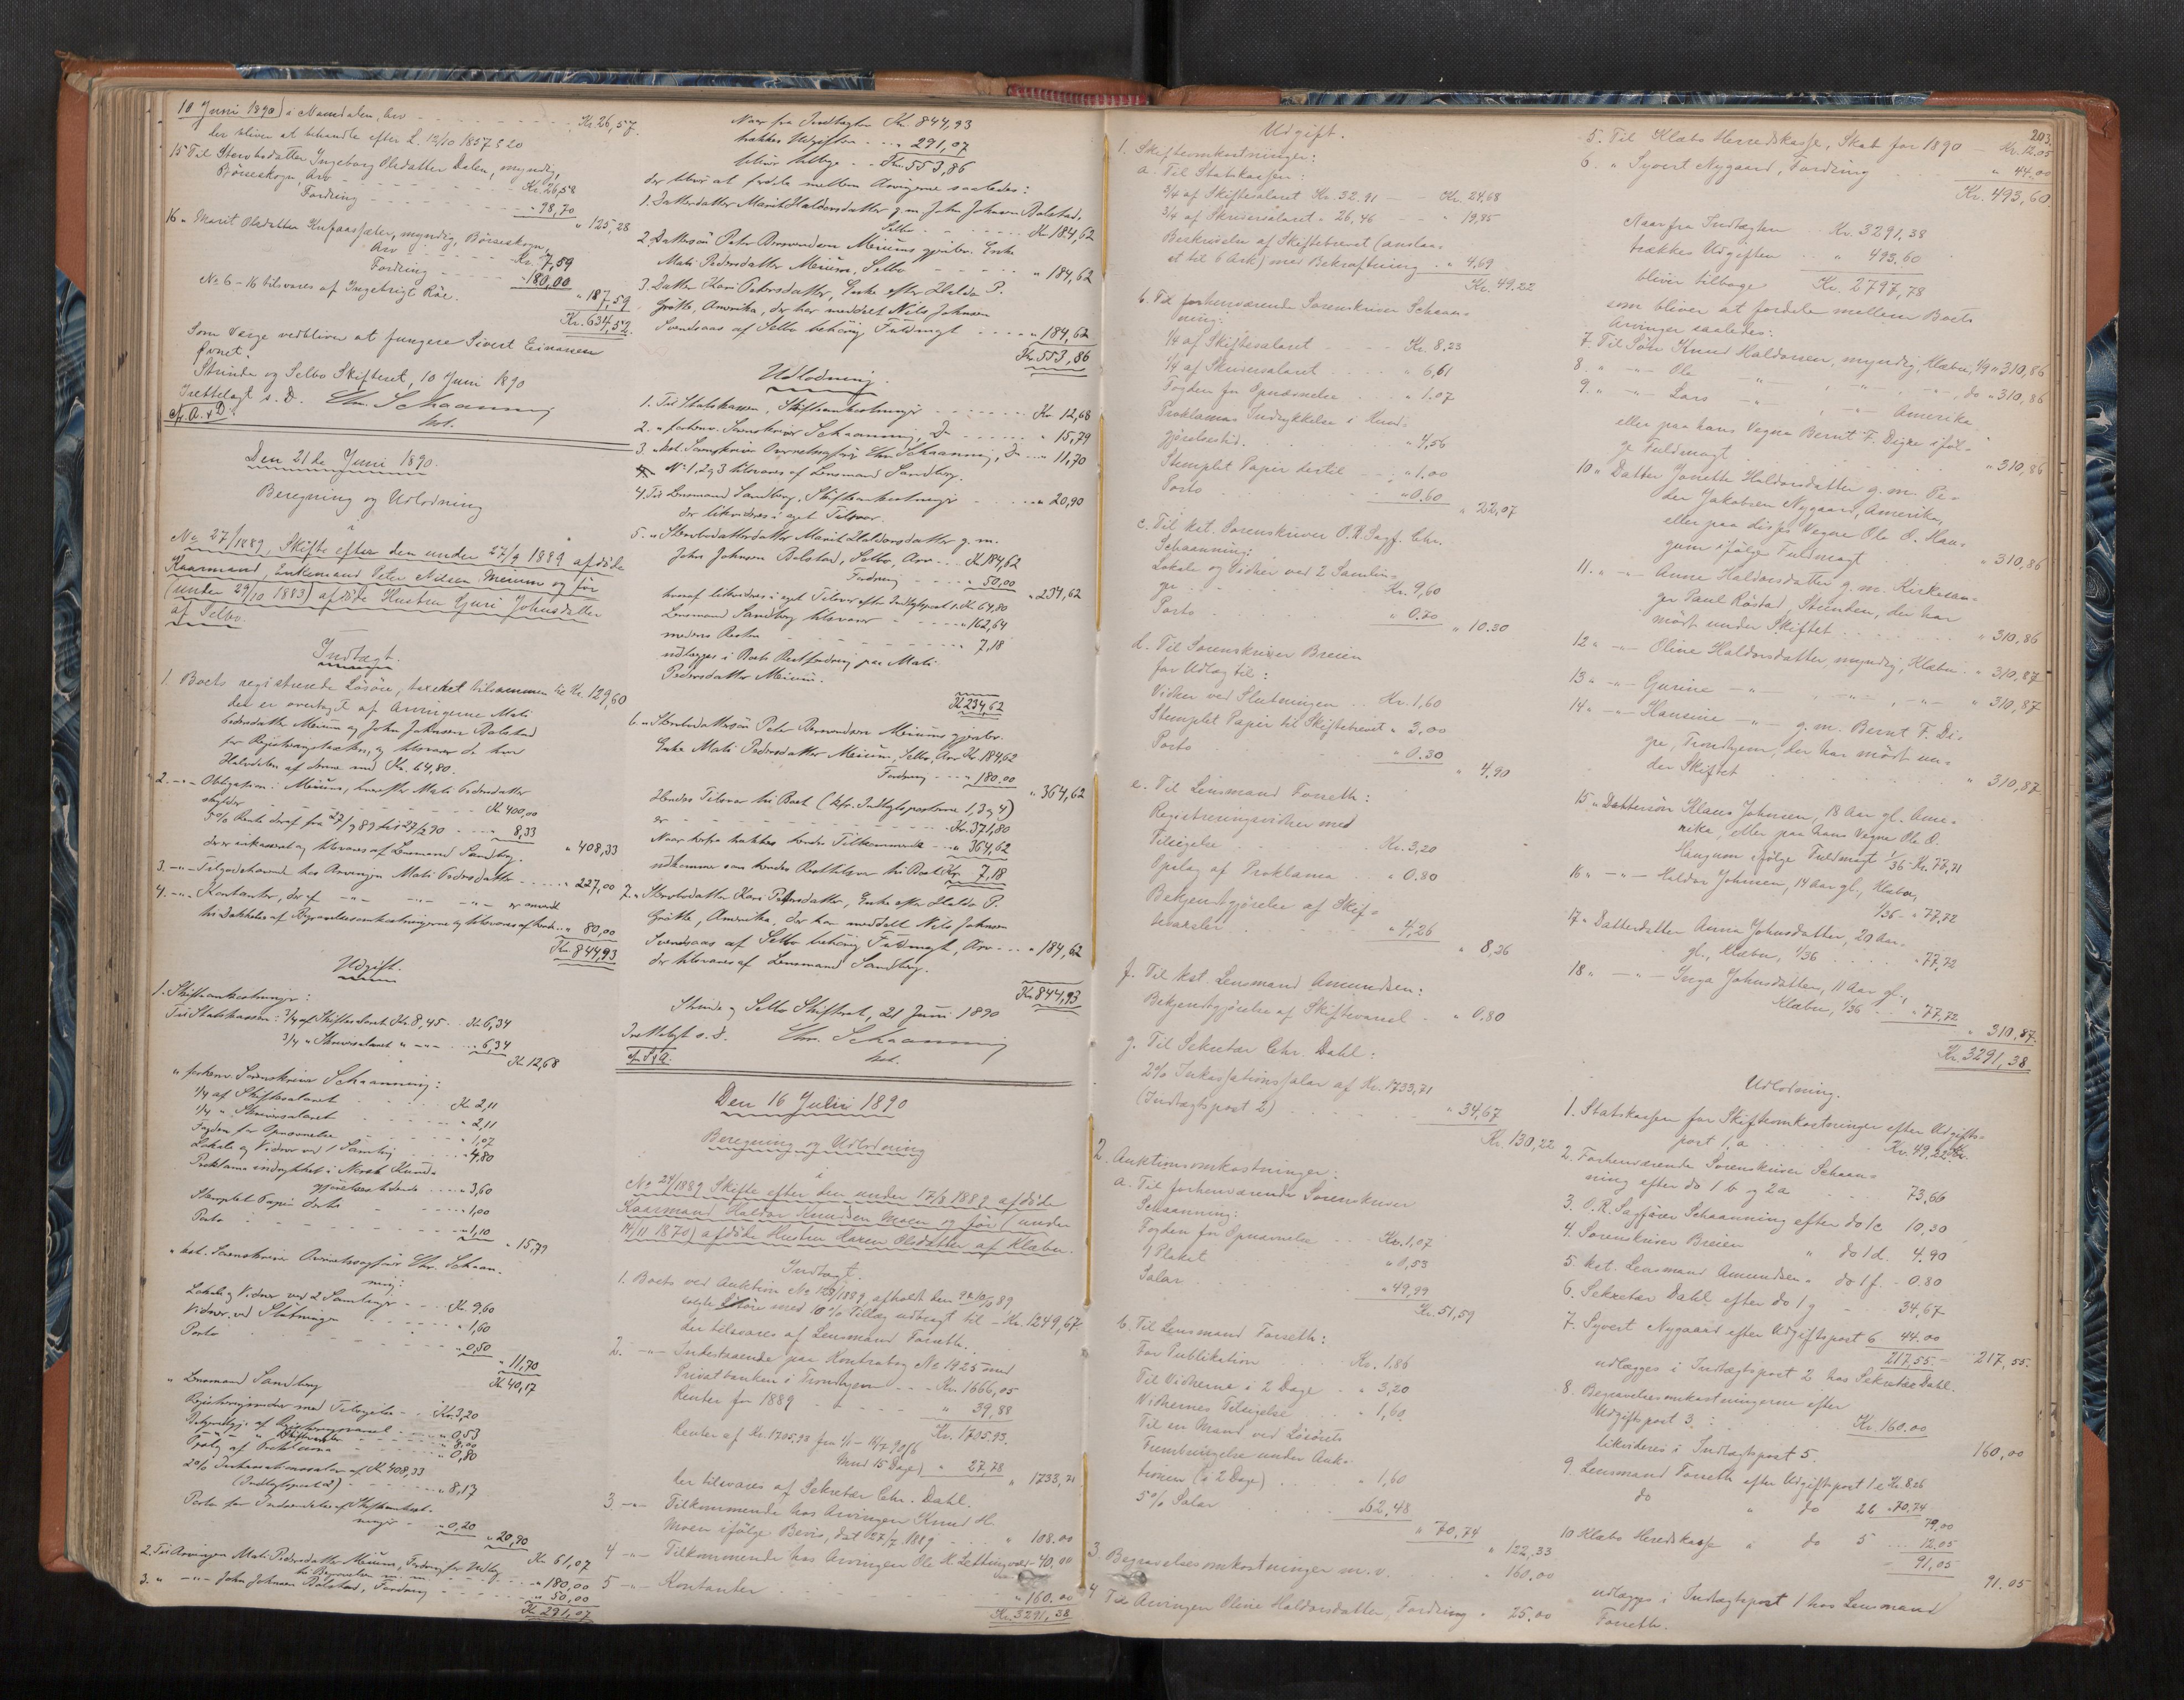 10 Juni 1890) i Namdalen, Arv - - - Kr. 26,57.
der bliver at behandle efter L. 12/10 1857 § 20
15 Til Stervbsdatter Ingeborg Olsdatter Dalen, myndig,
Börseskogn Arv - - - Kr. 26,58
Fordring - - - " 98,70
" 125,28
16 " Marit Olsdatter myndig, Börseskogn,
Arv - - - Kr. 7,59
Fordring - - - " 180,00
" 187,59
No 6-16 tilsvares af Ingebrigt Röe.
Kr. 634,52.
Som Verge vedbliver at fungere Sivert Einarsen
Övnet.
Strinda og Selbo Skifteret, 10 Juni 1890
Irettelagt s. D. Chr. Schaanning
kst.
Den 21de Juni 1890.
Beregning og Udlodning
i
No 27/1889, Skifte efter den under 27/9 1889 afdöde
Kaarmand, Enkemand Peter Nilsen Meium og för
(under 29/10 1883) afdöde Hustru Guri Johnsdatter
af Selbo.
Indtægt.
1. Boets registrerede Lösöre, taxeret tilsammen til Kr. 129,60
der er overtaget af Arvingerne Mali
Pedersdatter Meium og John Johnsen Balstad
for Registreringstaxten, og tilsvarer de hver
Halvdelen af denne med Kr. 64,80.
2. -"- Obligation i Meium, hvorefter Mali Pedersdatter
skylder - - - Kr 400,00
5% Rente deraf fra 27/9 89 til 27/2 90 - - " 8,33
" 408,33
der er inkasseret og tilsvares af Lensmand Sandberg.
3. -"- Tilgodehavende hos Arvingen Mali Pedersdatter - - " 227,00
4. -"- Kontanter, der af -"- -"- -"- er anvendt
til Dækkelse af Begravelsesomkostningerne og tilsvares af hende " 80,00
Kr. 844,93
Udgift.
1. Skifteomkostninger:
Til Statskassen: 3/4 af Skiftesalaret Kr. 8,45 - - Kr 6,34
3/4 " Skriversalaret " -"- - - 6,34
Kr 12,68
" forhenv. Sorenskriver Schaanning:
1/4 af Skiftesalaret - - Kr 2,11
1/4 " Skriversalaret - - " 2,11
Fogden for Opnævnelse - - " 1,07
Lokale og Vidner ved 1 Samling - - " 4,80
Proklama indrykket i Norsk Kund-
gjörelsestidende - - " 3,60
Stemplet Papir dertil - - " 1,00
Porto - - " 1,10
" 15,79
" kst. Sorenskriver Overretssagförer Chr. Schaan-
ning:
Lokale og Vidner ved 2 Samlinger - - Kr. 9,60
Vidner ved Slutningen - - " 1,60
Porto - - " 0,50
" 11,70
Kr 40,17
" Lensmand Sandberg
Registreringsvidner med Tilsigelse - - Kr. 3,20
Bekjendtgj. af Registreringsvarsel - - " 0,53
-"- " Skiftevarsler - - " 8,00
Opslag af Proklama - - " 0,80
2% Inkassationssalar af Kr. 408,33
(Indtægtspost 2) - - " 8,17
Porto for Indsendelse af Skifteomkost-
ninger - - " 0,20
" 20,90
Kr 61,07
2. Til Arvingen Mali Pedersdatter Meium, Fordring for Udlæg
til Begravelsen m. m. - - " 180,00
3. " -"- John Johnsen Balstad, Fordring - - " 50,00
Kr 291,07
Naar fra Indtægten Kr. 844,93
trækkes Udgiften - - " 291,07
bliver tilbage - - Kr. 553,86
der bliver at fordele mellem Arvingerne saaledes:
1. Datterdatter Marit Haldorsdatter g. m. John Johnsen Balstad,
Selbo - - - Kr. 184,62
2. Dattersön Peter Bernardsen Meiums gjenlev. Enke
Mali Pedersdatter Meium, Selbo - - " 184,62
3. Datter Kari Petersdatter, Enke efter Haldo P.
Grötte, Amerika, der har meddelt Nils Johnsen
Svendsaas af Selbo behörig Fuldmagt - - " 184,62
Kr. 553,86
Udlodning.
1. Til Statskassen, Skifteomkostninger - - Kr 12,68
2. " forhenv. Sorenskriver Schaanning, Do - - " 15,79
3. " kst. Sorenskriver Overretssagförer Chr. Schaanning, Do - - " 11,70
No 1, 2 og 3 tilsvares af Lensmand Sandberg.
4. Til Lensmand Sandberg, Skifteomkostninger - - " 20,90
der likvideres i eget Tilsvar.
5. " Stervbsdatterdatter Marit Haldorsdatter g. m.
John Johnsen Balstad, Selbo, Arv - - Kr 184,62
Fordring - - " 50,00
" 234,62
hvoraf likvideres i eget Tilsvar efter Indtægtspost 1, Kr 64,80
Lensmand Sandberg tilsvarer - - " 162,64
medens Resten - - " 7,18
udlægges i Boets Restfordring paa Mali
Pedersdatter Meium.
Kr 234,62
6. " Stervbsdattersön Peter Bernardsen Meiums gjenlev.
Enke Mali Pedersdatter Meium, Selbo, Arv Kr. 184,62
Fordring - - " 180,00
" 364,62
Hendes Tilsvar til Boet (kfr. Indtægtsposterne 1, 3 og 4)
er - - - Kr. 371,80
Naar herfra trækkes hendes Tilkommende - - " 364,62
udkommer som hendes Resttilsvar til Boet Kr. 7,18
7. " Stervbsdatter Kari Petersdatter, Enke efter Haldo P.
Grötte, Amerika, der har meddelt Nils Johnsen
Svendsaas af Selbo behörig Fuldmagt, Arv - - " 184,62
der tilsvares af Lensmand Sandberg.
Kr 844,93
Strinda og Selbo Skifteret, 21 Juni 1890
Irettelagt s. d. Chr. Schaanning
kst.
Den 16 Juli 1890
Beregning og Udlodning
i
No 24/1889 Skifte efter den under 17/8 1889 afdöde
Kaarmand Haldor Knudsen Moen og för (under
14/11 1870) afdöde Hustru Karen Olsdatter af Klæbu.
Indtægt.
1. Boets ved Auktion afholdt den
solgte Lösöre med 10% Tillæg udbragt til - Kr. 1249,67
der tilsvares af Lensmand Forseth.
2. -"- Indestaaende paa Kontrabog No 1925 med
Privatbanken i Trondhjem - - Kr. 1666,05
Renter for 1889 - - " 39,88
Kr. 1705,93.
Renter af Kr. 1705,93 fra 1/1 - 16/7 90 (6
Mnd 15 Dage) " 27,78
" 1733,71
der tilsvares af Sekretær Chr. Dahl.
3. -"- Tilkommende hos Arvingen Knud H.
Moen ifölge Bevis, dat 27/7 1889 - - " 108.00
4 -"- Tilkommende hos Arvingen Ole H. - 40,00
5 -"- Kontanter - - " 160.00
Kr. 3291,38
Udgift.
1. Skifteomkostninger:
a. Til Statskassen:
3/4 af Skiftesalaret Kr. 32.91 - - Kr. 24,68
3/4 af Skriversalaret " 26,46 - - " 19,85
Beskrivelse af Skiftebrevet (anslaa-
et til 6 Ark) med Bekræftning - " 4,69
Kr. 49.22
b. Til forhenværende Sorenskriver Schaan-
ning:
1/4 af Skiftesalaret - - Kr. 8,23
1/4 af Skriversalaret - - " 6,61
Fogden for Opnævnelse - - " 1.07
Proklamas Indrykkelse i Kund-
gjörelsestid. - - " 4,56
Stemplet Papir dertil - - " 1.00
Porto - - " 0.60
" 22,07
c. Til kst. Sorenskriver O. R. Sagf. Chr.
Schaanning:
Lokale og Vidner ved 2 Samlin-
ger - - Kr. 9,60
Porto - - " 0.70
" 10.30
d. Til Sorenskriver Breien
for Udlæg til:
Vidner ved Slutningen - - Kr. 1,60
Stemplet Papir til Skiftebrevet " 3,00
Porto - - " 0.30
" 4,90
e. Til Lensmand Forseth:
Registreringsvidner med
Tilsigelse - - Kr. 3,20
Opslag af Proklama - - " 0.80
Bekjendtgjörelse af Skif-
tevarsler - - " 4,26
" 8,26
f. Til kst. Lensmand Amundsen:
Bekjendtgjörelse af Skiftevarsel - " 0.80
g. Til Sekretær Chr. Dahl:
2% Inkassationssalar af Kr. 1733,71
(Indtægtspost 2) - - " 34,67
Kr. 130,22
2. Auktionsomkostninger:
a. Til forhenværende Sorenskriver
Schaanning:
Fogden for Opnævnelse - - Kr. 1,07
1 Plakat - - " 0,53
Salar - - " 49,99
Kr. 51,59
b. Til Lensmand Forseth:
For Publikation - - Kr. 1,86
Til Vidnerne i 2 Dage - - " 3,20
Vidnernes Tilsigelse - - " 1,60
Til en Mand ved Lösörets
Frembringelse under Auk-
tionen (i 2 Dage) - - " 1,60
5% Salar - - " 62,48
" 70,74
" 122,33
3. Begravelsesomkostninger m. v. - - " 160.00
4 Til Arvingen Oline Haldorsdatter, Fordring " 25.00
203.
5. Til Klæbo Herredskasse, Skat for 1890 - Kr. 12.05
6. " Syvert Nygaard, Fordring - - " 44.00
Kr. 493,60
Naar fra Indtægten - - Kr. 3291,38
trækkes Udgiften - - " 493.60
bliver tilbage Kr. 2797,78
som bliver at fordele mellem Boets
Arvinger saaledes:
7. Til Sön Knud Haldorsen, myndig, Klæbu, 1/9 " 310,86
8. " -"- Ole -"- , -"- , -"- , do " 310,86
9. " -"- Lars -"- , -"- Amerika
eller paa hans Vegne Bernt F. Digre iföl-
ge Fuldmagt - - " 310,86
10 " Datter Jonette Haldorsdatter g. m. Pe-
der Jakobsen Nygaard, Amerika,
eller paa disses Vegne Ole O. Hau-
gum ifölge Fuldmagt - - " 310,86
11. " -"- Anne Haldorsdatter g. m. Kirkesan-
ger Paul Röstad, Strinden, der har
mödt under Skiftet - - " 310,86
12 " -"- Oline Haldorsdatter, myndig, Klæbu - " 310,87
13 " -"- Gurine -"- , -"- , -"- " 310,87
14 " -"- Hansine -"- g. m. Bernt F. Di-
gre, Trondhjem, der har mödt un-
der Skiftet - - " 310,87
15 " Dattersön Klaus Johnsen, 18 Aar gl. Ame-
rika, eller paa hans Vegne Ole O.
Haugum ifölge Fuldmagt 1/36 - Kr. 77,71
16 " -"- Haldor Johnsen, 14 Aar gl., Klæbu,
1/36 - " 77,72
17 " Datterdatter Anna Johnsdatter, 20 Aar
gl., Klæbu, 1/36 - - " 77,72
18 " -"- Inga Johnsdatter, 11 Aar gl.,
Klæbu, 1/36 - - " 77,72
" 310,87.
Kr. 3291,38
Udlodning.
1. Statskassen for Skifteomkostninger efter Udgifts-
post 1, a - - Kr. 49,22
2. Forhenværende Sorenskriver Schaan-
ning efter do 1 b og 2 a - - 73,66
3. O. R. Sagförer Schaanning efter do 1 c 10,30
4. Sorenskriver Breien " do 1 d. 4.90
5. kst. Lensmand Amundsen " do 1 f. - 0.80
6. Sekretær Dahl efter do 1 g - 34,67
7. Syvert Nygaard efter Udgiftspost 6 44.00
217,55 - 217,55.
udlægges i Indtægtspost 2 hos Sekretær Dahl.
8. Begravelsesomkostningerne efter
Udgiftspost 3. - - Kr. 160.00
likvideres i Indtægtspost 5. 160,00
9. Lensmand Forseth efter Udgiftspost 1 e Kr. 8.26
do " do 2 b " 70,74
79,00
10 Klæbo Herredskasse " do 5 - - 12.05
91,05
91.05
udlægges i Indtægtspost 1 hos Lensmand
Forseth.